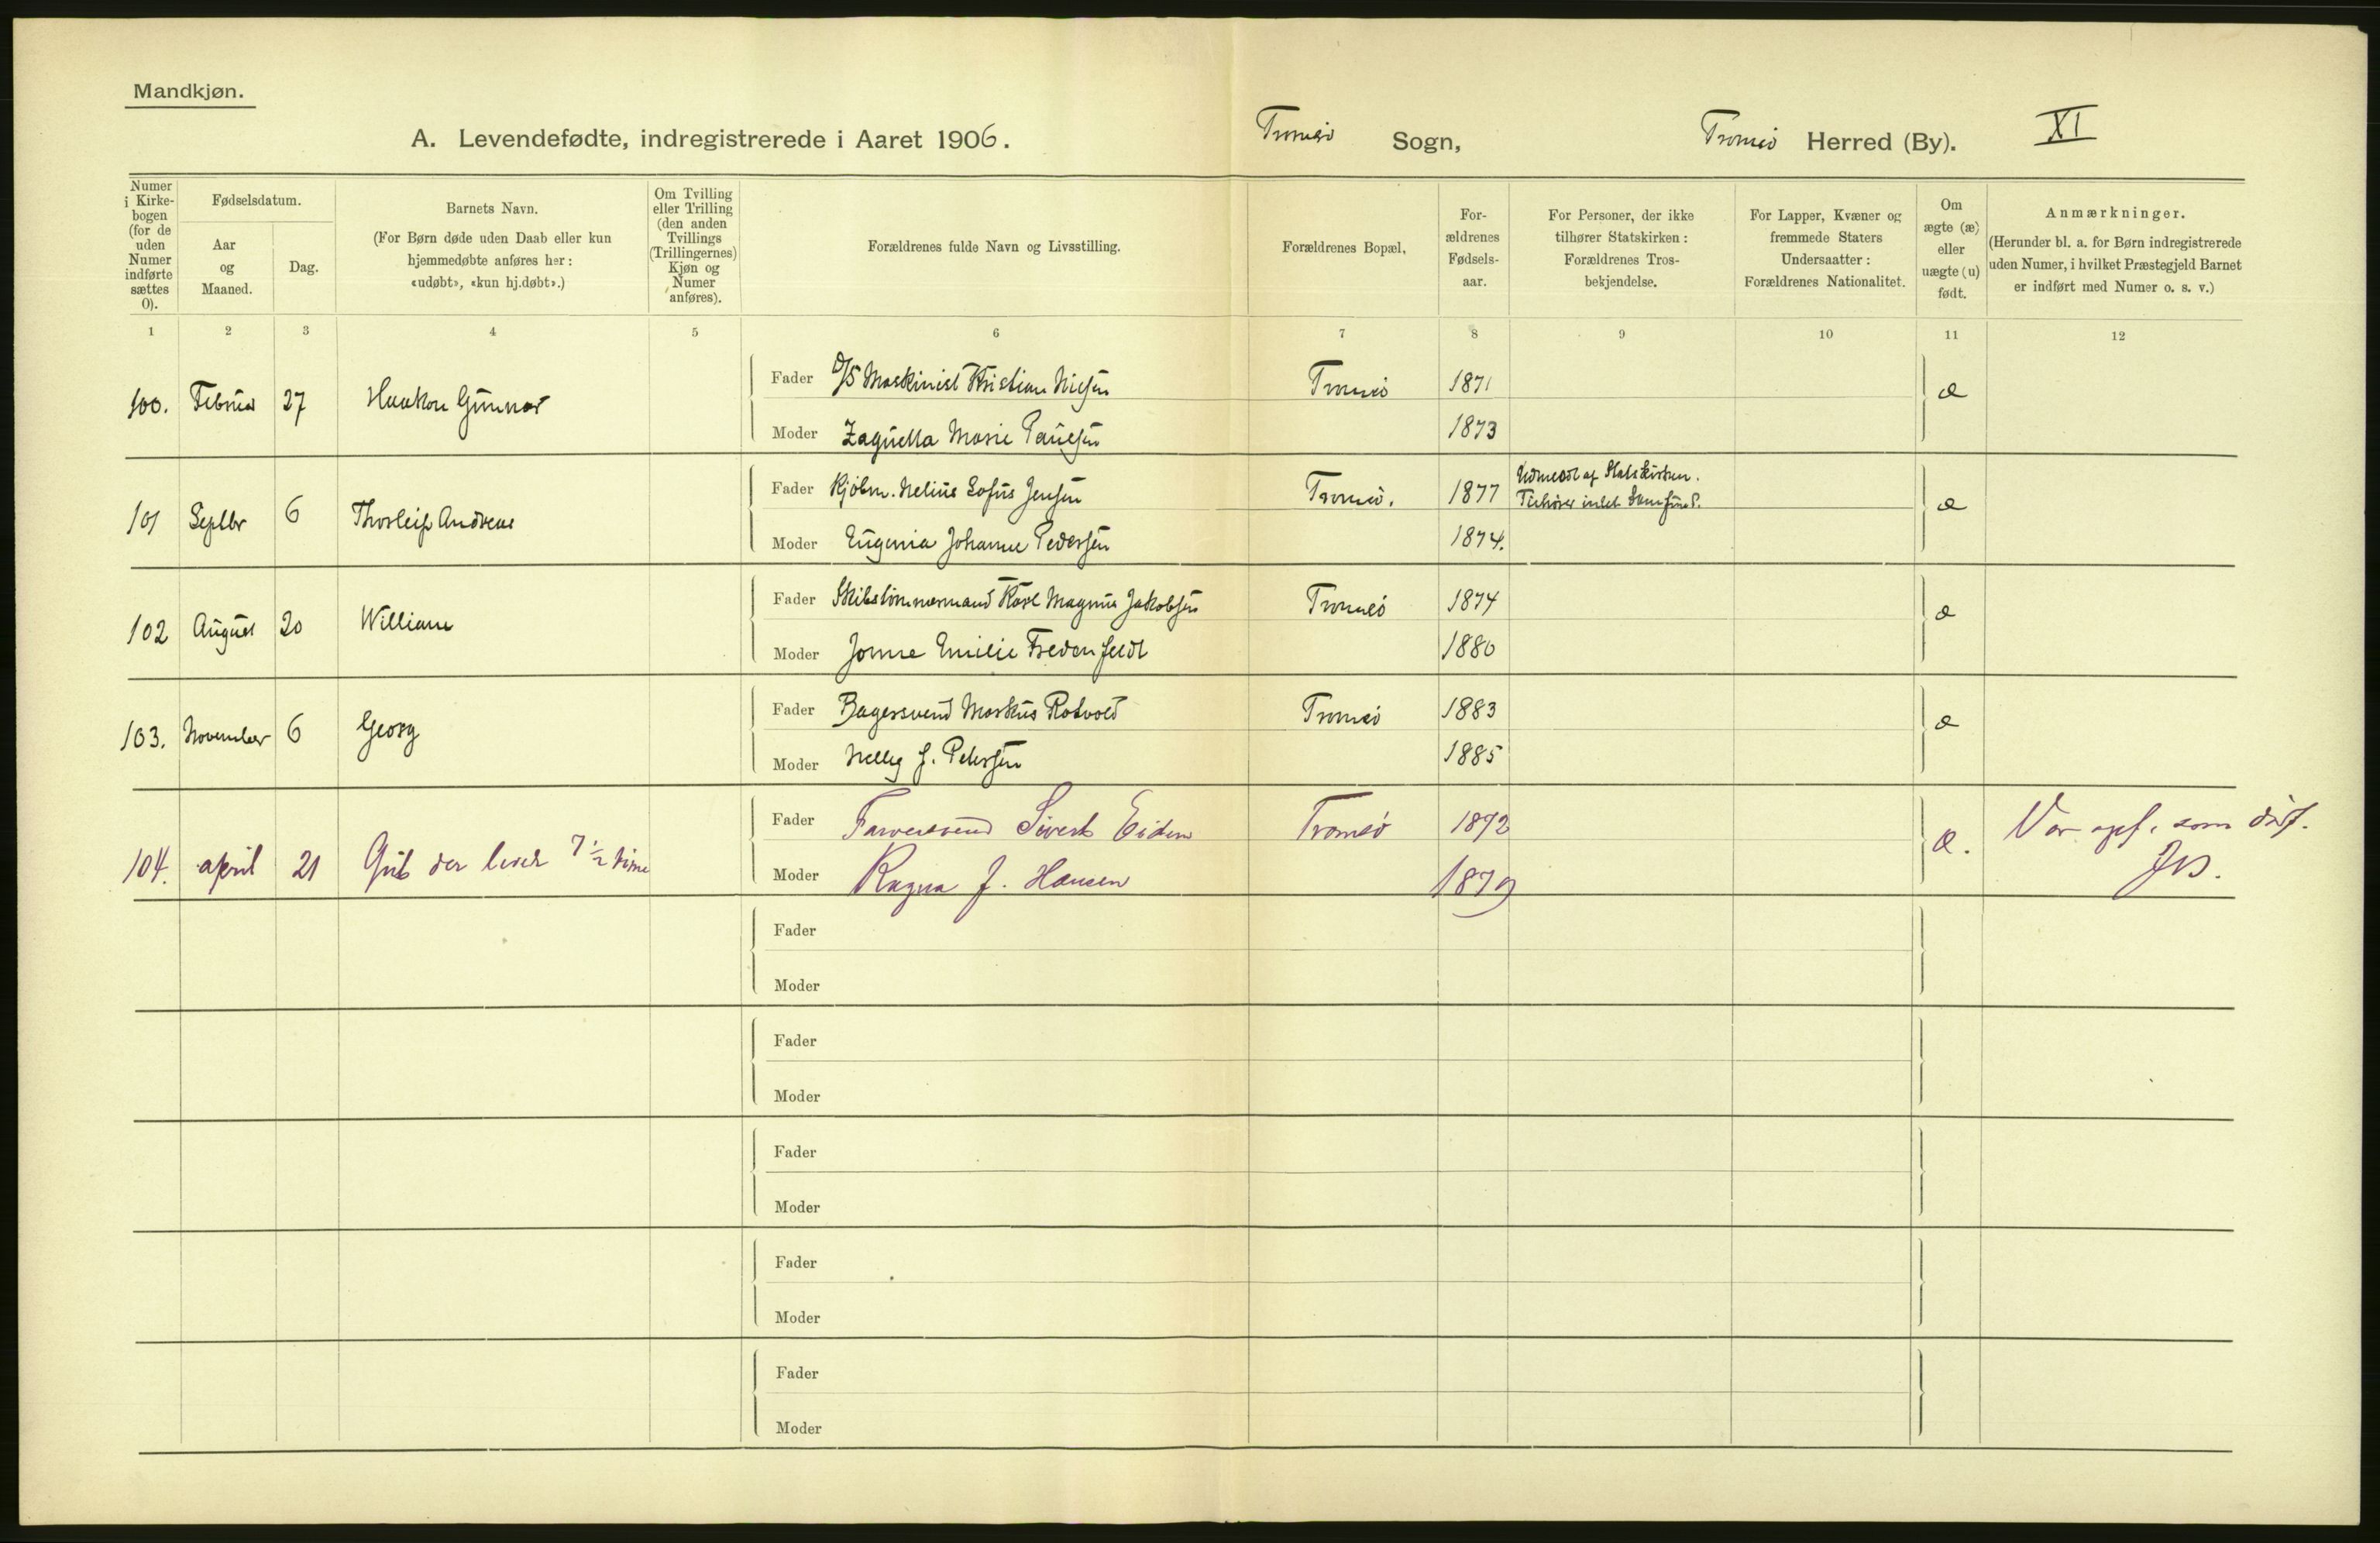 Mandkjøn.
A. Levendefødte, indregistrerede i Aaret 1906.
Tromsø Sogn,
Tromsø Herred (By).
XI
Numer i Kirke-bogen (for de uden Numer indførte sættes 0).
Fødselsdatum.
Aar og Maaned.
Dag.
Barnets Navn.
(For Børn døde uden Daab eller kun hjemmedøbte anføres her: «udøbt», «kun hj.døbt».)
Om Tvilling eller Trilling (den anden Tvillings (Trillingernes) Kjøn og Numer anføres).
Forældrenes fulde Navn og Livsstilling.
Forældrenes Bopæl,
For-ældrenes Fødsels-aar.
For Personer, der ikke tilhører Statskirken: Forældrenes Tros-bekjendelse.
For Lapper, Kvæner og fremmede Staters Undersaatter: Forældrenes Nationalitet.
Om ægte (æ) eller uægte (u) født.
Anmærkninger.
(Herunder bl. a. for Børn indregistrerede uden Numer, i hvilket Præstegjeld Barnet er indført med Numer o. s. v.)
1 2 3 4 5 6 7 8 9 10 11 12
100. Februar 27 Haakon Gunnar Fader D/S Maskinist Kristian Nilsen Tromsø 1871 æ
Moder Zagnella Marie Paulsen 1873
101 Septbr 6 Thorleif Andreas Fader Kjøbm. Nelius Sofus Jensen Tromsø. 1877 Udmeldt af Statskirken. Tilhører intet Samfund. æ
Moder Eugenia Johanne Pedersen 1874.
102 August 20 William Fader Skibstømmermand Karl Magnus Jakobsen Tromsø 1874 æ
Moder Emilie 1880
103. November 6 Georg Fader Bagersvend Markus Rotvold Tromsø 1883 æ
Moder Nelly J. Petersen 1885
104. april 21 Gut der levet 7 1/2 time Fader Farversvend Sivert Eidem Tromsø 1872 æ. Var opf. som
Moder Ragna J. Hansen 1879
Fader
Moder
Fader
Moder
Fader
Moder
Fader
Moder
Fader
Moder